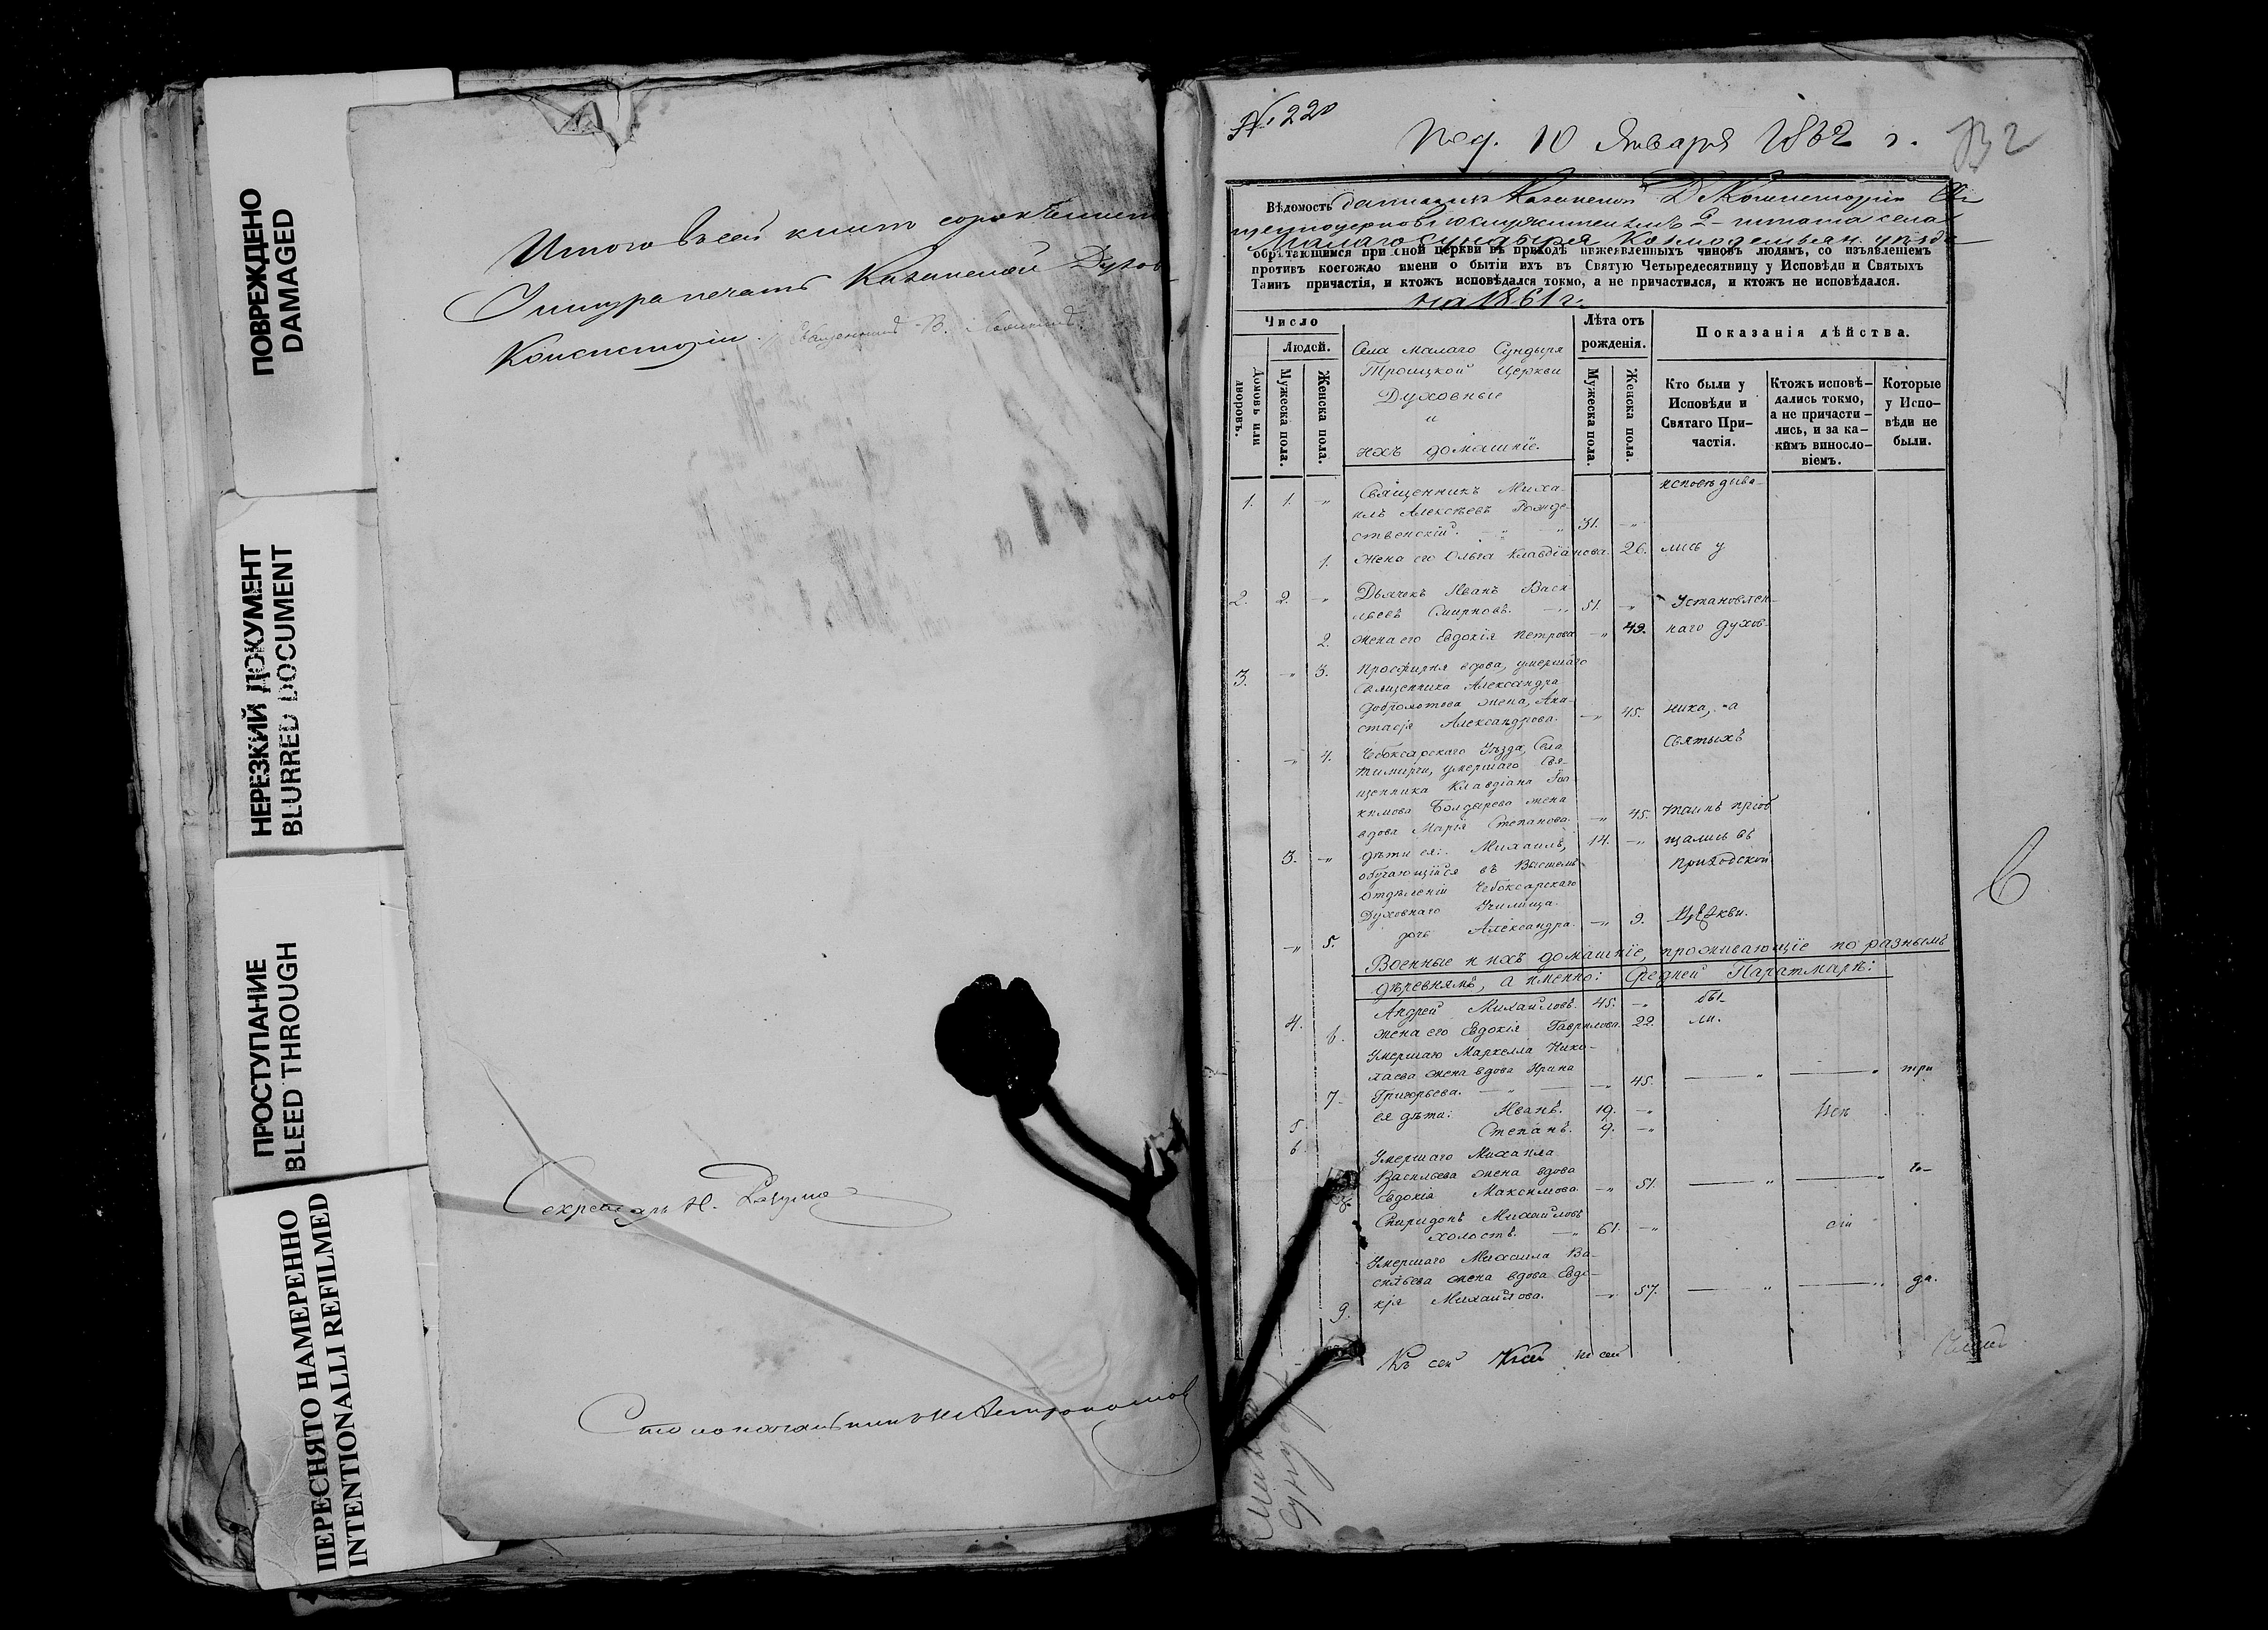 ПОВРЕЖДЕНО
DAMAGED
НЕРЕЗКИЙ ДОКУМЕНТ
BLURRED DOCUMENT
ПРОСТУПАНИЕ
BLEED THROUGH
ПЕРЕСНЯТО НАМЕРЕННО
INTENTIONALLI REFILMED
Итого в сей книге
печать Казанской Духов
Консисторіи.
Секретарь Н.
Столоначальникъ
№ 220
10 Января 1862 г.
Вѣдомость Казанской Д Консисторіи
штата села
Малаго Сундыря Козмодемьян. уѣзда
обрѣтающимся при оной церкви въ приходѣ нижеявленныхъ чиновъ людямъ, со изъявленіемъ
противъ коегождо имени о бытіи ихъ въ Святую Четыредесятницу у Исповѣди и Святыхъ
Таинъ причастія, и ктожъ исповѣдался токмо, а не причастился, и ктожъ не исповѣдался.
на 1861 г.
Число
Людей.
Домовъ или дворовъ.
Мужеска пола.
Женска пола.
Села Малаго Сундыря
Троицкой Церкви
Духовные
и
ихъ домашніе.
Лѣта отъ
рожденія.
Мужеска пола.
Женска пола.
Показанія дѣйства.
Кто были у
Исповѣди и
Святаго При-
частія.
Ктожъ исповѣ-
дались токмо,
а не причасти-
лись, и за ка-
кимъ винosло-
віемъ.
Которые
у Испо-
вѣди не
были.
1. 1. -„ Священникъ Миха- исповѣдыва-
илъ Алексѣевъ Рожде-
ственскій. 31. -„
1. Жена его Ольга Клавдіанова. 26. лись у
2. 2. -„ Дьячекъ Иванъ Васи-
льевъ Смирновъ. -„ 51. -„ Установлен-
2. Жена его Евдокія Петрова -„ 49. наго духов-
3. -„ 3. Просфирня вдова, умершаго
священника Александра
Добромотова жена, Ана-
стасія Александрова. -„ 45. ника, а
-„ 4. Чебоксарскаго Уѣзда, Села Святыхъ
умершаго Свя-
щенника Клавдіана Іоа
кимова Болдырева жена
вдова Марія Степанова. -„ 45. Таинъ пріоб
3. -„ дѣти ея: Михаилъ, 14. -„ щались въ
обучающійся въ Высшемъ Приходской
отдѣленіи Чебоксарскаго
Духовнаго Училища.
-„ 5. дочь Александра. -„ 9. Церкви.
Военные и ихъ домашніе, проживающіе по разнымъ
дѣревнямъ, а именно: Средней Паратмарѣ:
4. Андрей Михайловъ. 45. -„ бы-
6. Жена его Евдокія Гаврилова. 22. ли.
Умершаго Маркелла Нико-
лаева жена вдова Ирина
7. Григорьева. -„ 45. три
5. ея дѣти: Иванъ. 19. -„
6. Степанъ. 9. -„
Умершаго Михаила
Васильева жена вдова
8. Евдокія Максимова. -„ 51. го-
Спиридонъ Михайловъ
холостъ. -„ 61. -„
Умершаго Михаила Ва-
сильева жена вдова Евдо-
9. кія Михайлова. -„ 57. да.
Къ сей